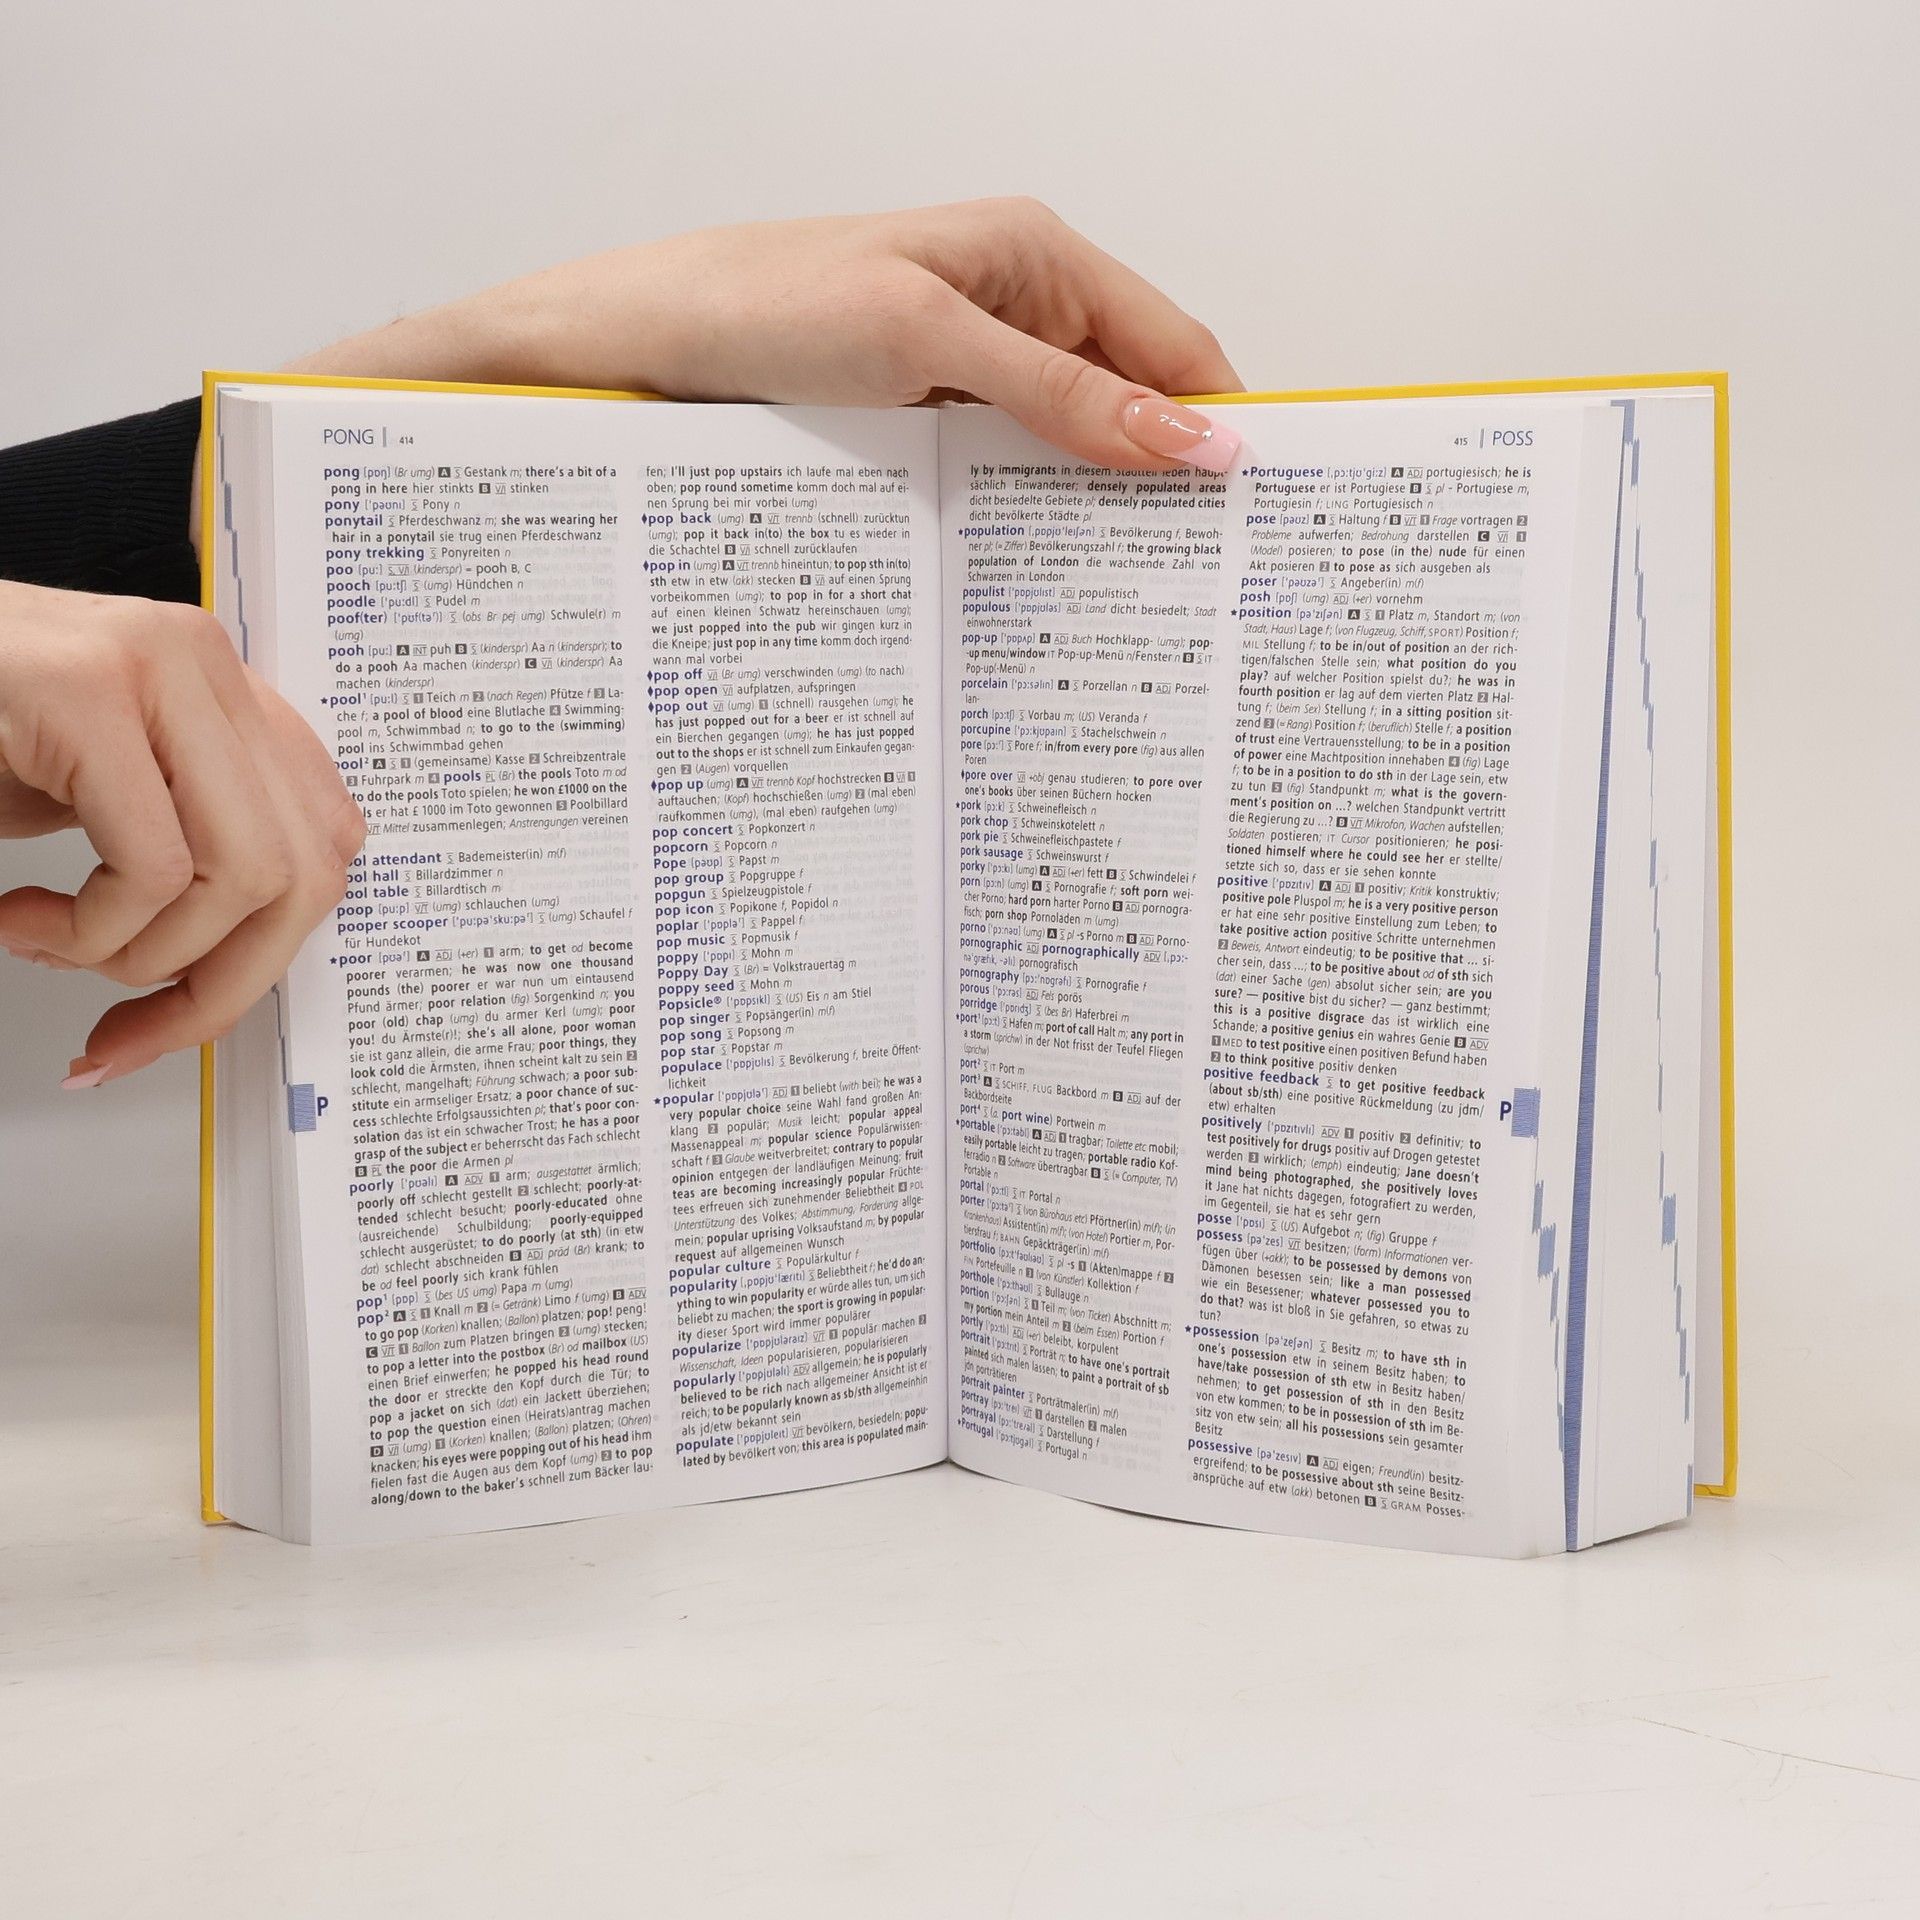 PONG | 414
pong [pɒŋ] (Br umg) A S Gestank m; there's a bit of a
pong in here hier stinkts B V/I stinken
pony ['pəʊnɪ] S Pony n
ponytail S Pferdeschwanz m; she was wearing her
hair in a ponytail sie trug einen Pferdeschwanz
pony trekking S Ponyreiten n
poo [puː] S, V/I (kinderspr) = pooh B, C
pooch [puːtʃ] S (umg) Hündchen n
poodle ['puːdl] S Pudel m
poof(ter) ['pʊf(təʳ)] S (obs Br pej umg) Schwule(r) m
(umg)
pooh [puː] A INT puh B S (kinderspr) Aa n (kinderspr); to
do a pooh Aa machen (kinderspr) C V/I (kinderspr) Aa
machen (kinderspr)
★pool¹ [puːl] S 1 Teich m 2 (nach Regen) Pfütze f 3 La-
che f; a pool of blood eine Blutlache 4 Swimming-
pool m, Schwimmbad n; to go to the (swimming)
pool ins Schwimmbad gehen
pool² A S 1 (gemeinsame) Kasse 2 Schreibzentrale
3 Fuhrpark m 4 pools PL (Br) the pools Toto m od
to do the pools Toto spielen; he won £1000 on the
er hat £ 1000 im Toto gewonnen 5 Poolbillard
V/T Mittel zusammenlegen; Anstrengungen vereinen
ol attendant S Bademeister(in) m(f)
ol hall S Billardzimmer n
ol table S Billardtisch m
poop [puːp] V/T (umg) schlauchen (umg)
pooper scooper ['puːpəˈskuːpəʳ] S (umg) Schaufel f
für Hundekot
★poor [pʊəʳ] A ADJ (+er) 1 arm; to get od become
poorer verarmen; he was now one thousand
pounds (the) poorer er war nun um eintausend
Pfund ärmer; poor relation (fig) Sorgenkind n; you
poor (old) chap (umg) du armer Kerl (umg); poor
you! du Ärmste(r)!; she's all alone, poor woman
sie ist ganz allein, die arme Frau; poor things, they
look cold die Ärmsten, ihnen scheint kalt zu sein 2
schlecht, mangelhaft; Führung schwach; a poor sub-
stitute ein armseliger Ersatz; a poor chance of suc-
cess schlechte Erfolgsaussichten pl; that's poor con-
solation das ist ein schwacher Trost; he has a poor
grasp of the subject er beherrscht das Fach schlecht
B PL the poor die Armen pl
poorly ['pʊəlɪ] A ADV 1 arm; ausgestattet ärmlich;
poorly off schlecht gestellt 2 schlecht; poorly-at-
tended schlecht besucht; poorly-educated ohne
(ausreichende) Schulbildung; poorly-equipped
schlecht ausgerüstet; to do poorly (at sth) (in etw
dat) schlecht abschneiden B ADJ präd (Br) krank; to
be od feel poorly sich krank fühlen
pop¹ [pɒp] S (bes US umg) Papa m (umg)
pop² A S 1 Knall m 2 (= Getränk) Limo f (umg) B ADV
to go pop (Korken) knallen; (Ballon) platzen; pop! peng!
C V/T 1 Ballon zum Platzen bringen 2 (umg) stecken;
to pop a letter into the postbox (Br) od mailbox (US)
einen Brief einwerfen; he popped his head round
the door er streckte den Kopf durch die Tür; to
pop a jacket on sich (dat) ein Jackett überziehen;
to pop the question einen (Heirats)antrag machen
D V/I (umg) 1 (Korken) knallen; (Ballon) platzen; (Ohren)
knacken; his eyes were popping out of his head ihm
fielen fast die Augen aus dem Kopf (umg) 2 to pop
along/down to the baker's schnell zum Bäcker lau-
P
fen; I'll just pop upstairs ich laufe mal eben nach
oben; pop round sometime komm doch mal auf ei-
nen Sprung bei mir vorbei (umg)
♦pop back (umg) A V/T trennb (schnell) zurücktun
(umg); pop it back in(to) the box tu es wieder in
die Schachtel B V/I schnell zurücklaufen
♦pop in (umg) A V/T trennb hineintun; to pop sth in(to)
sth etw in etw (akk) stecken B V/I auf einen Sprung
vorbeikommen (umg); to pop in for a short chat
auf einen kleinen Schwatz hereinschauen (umg);
we just popped into the pub wir gingen kurz in
die Kneipe; just pop in any time komm doch irgend-
wann mal vorbei
♦pop off V/I (Br umg) verschwinden (umg) (to nach)
♦pop open V/I aufplatzen, aufspringen
♦pop out V/I (umg) 1 (schnell) rausgehen (umg); he
has just popped out for a beer er ist schnell auf
ein Bierchen gegangen (umg); he has just popped
out to the shops er ist schnell zum Einkaufen gegan-
gen 2 (Augen) vorquellen
♦pop up (umg) A V/T trennb Kopf hochstrecken B V/I 1
auftauchen; (Kopf) hochschießen (umg) 2 (mal eben)
raufkommen (umg), (mal eben) raufgehen (umg)
pop concert S Popkonzert n
popcorn S Popcorn n
Pope [pəʊp] S Papst m
pop group S Popgruppe f
popgun S Spielzeugpistole f
pop icon S Popikone f, Popidol n
poplar ['pɒpləʳ] S Pappel f
pop music S Popmusik f
poppy ['pɒpɪ] S Mohn m
Poppy Day S (Br) ≈ Volkstrauertag m
poppy seed S Mohn m
Popsicle® ['pɒpsɪkl] S (US) Eis n am Stiel
pop singer S Popsänger(in) m(f)
pop song S Popsong m
pop star S Popstar m
populace ['pɒpjʊlɪs] S Bevölkerung f, breite Öffent-
lichkeit
★popular ['pɒpjʊləʳ] ADJ 1 beliebt (with bei); he was a
very popular choice seine Wahl fand großen An-
klang 2 populär; Musik leicht; popular appeal
Massenappeal m; popular science Populärwissen-
schaft f 3 Glaube weitverbreitet; contrary to popular
opinion entgegen der landläufigen Meinung; fruit
teas are becoming increasingly popular Früchte-
tees erfreuen sich zunehmender Beliebtheit 4 POL
Unterstützung des Volkes; Abstimmung, Forderung allge-
mein; popular uprising Volksaufstand m; by popular
request auf allgemeinen Wunsch
popular culture S Populärkultur f
popularity [ˌpɒpjʊˈlærɪtɪ] S Beliebtheit f; he'd do an-
ything to win popularity er würde alles tun, um sich
beliebt zu machen; the sport is growing in popular-
ity dieser Sport wird immer populärer
popularize ['pɒpjʊləraɪz] V/T 1 populär machen 2
Wissenschaft, Ideen popularisieren, popularisieren
popularly ['pɒpjʊləlɪ] ADV allgemein; he is popularly
believed to be rich nach allgemeiner Ansicht ist er
reich; to be popularly known as sb/sth allgemeinhin
als jd/etw bekannt sein
populate ['pɒpjʊleɪt] V/T bevölkern, besiedeln; popu-
lated by bevölkert von; this area is populated main-
415 | POSS
ly by immigrants in diesem Stadtteil leben haupt-
sächlich Einwanderer; densely populated areas
dicht besiedelte Gebiete pl; densely populated cities
dicht bevölkerte Städte pl
★population [ˌpɒpjʊˈleɪʃən] S Bevölkerung f, Bewoh-
ner pl; (= Ziffer) Bevölkerungszahl f; the growing black
population of London die wachsende Zahl von
Schwarzen in London
populist ['pɒpjʊlɪst] ADJ populistisch
populous ['pɒpjʊləs] ADJ Land dicht besiedelt; Stadt
einwohnerstark
pop-up ['pɒpʌp] A ADJ Buch Hochklapp- (umg); pop-
-up menu/window IT Pop-up-Menü n/Fenster n B S IT
Pop-up(-Menü) n
porcelain ['pɔːsəlɪn] A S Porzellan n B ADJ Porzel-
lan-
porch [pɔːtʃ] S Vorbau m; (US) Veranda f
porcupine ['pɔːkjʊpaɪn] S Stachelschwein n
pore [pɔːʳ] S Pore f; in/from every pore (fig) aus allen
Poren
♦pore over V/I +obj genau studieren; to pore over
one's books über seinen Büchern hocken
★pork [pɔːk] S Schweinefleisch n
pork chop S Schweinskotelett n
pork pie S Schweinefleischpastete f
pork sausage S Schweinswurst f
porky ['pɔːkɪ] (umg) A ADJ (+er) fett B S Schwindelei f
porn [pɔːn] (umg) A S Pornografie f; soft porn wei-
cher Porno; hard porn harter Porno B ADJ pornogra-
fisch; porn shop Pornoladen m (umg)
porno ['pɔːnəʊ] (umg) A S pl -s Porno m B ADJ Porno-
pornographic ADJ pornographically ADV [ˌpɔː-
nəˈɡræfɪk, -əlɪ] pornografisch
pornography [pɔːˈnɒɡrəfɪ] S Pornografie f
porous ['pɔːrəs] ADJ Fels porös
porridge ['pɒrɪdʒ] S (bes Br) Haferbrei m
★port¹ [pɔːt] S Hafen m; port of call Halt m; any port in
a storm (sprichw) in der Not frisst der Teufel Fliegen
(sprichw)
port² S IT Port m
port³ A S SCHIFF, FLUG Backbord m B ADJ auf der
Backbordseite
port⁴ S (a. port wine) Portwein m
★portable ['pɔːtəbl] A ADJ 1 tragbar; Toilette etc mobil;
easily portable leicht zu tragen; portable radio Kof-
ferradio n 2 Software übertragbar B S (= Computer, TV)
Portable n
portal ['pɔːtl] S IT Portal n
porter ['pɔːtəʳ] S (von Bürohaus etc) Pförtner(in) m(f); (in
Krankenhaus) Assistent(in) m(f); (von Hotel) Portier m, Por-
tiersfrau f; BAHN Gepäckträger(in) m(f)
portfolio [pɔːtˈfəʊlɪəʊ] S pl -s 1 (Akten)mappe f 2
FIN Portefeuille n 3 (von Künstler) Kollektion f
porthole ['pɔːthəʊl] S Bullauge n
portion ['pɔːʃən] S 1 Teil m; (von Ticket) Abschnitt m;
my portion mein Anteil m 2 (beim Essen) Portion f
portly ['pɔːtlɪ] ADJ (+er) beleibt, korpulent
portrait ['pɔːtrɪt] S Porträt n; to have one's portrait
painted sich malen lassen; to paint a portrait of sb
jdn porträtieren
portrait painter S Porträtmaler(in) m(f)
portray [pɔːˈtreɪ] V/T 1 darstellen 2 malen
portrayal [pɔːˈtreɪəl] S Darstellung f
★Portugal ['pɔːtjʊɡəl] S Portugal n
★Portuguese [ˌpɔːtjʊˈɡiːz] A ADJ portugiesisch; he is
Portuguese er ist Portugiese B S pl - Portugiese m,
Portugiesin f; LING Portugiesisch n
pose [pəʊz] A S Haltung f B V/T 1 Frage vortragen 2
Probleme aufwerfen; Bedrohung darstellen C V/I 1
(Model) posieren; to pose (in the) nude für einen
Akt posieren 2 to pose as sich ausgeben als
poser ['pəʊzəʳ] S Angeber(in) m(f)
posh [pɒʃ] (umg) ADJ (+er) vornehm
★position [pəˈzɪʃən] A S 1 Platz m, Standort m; (von
Stadt, Haus) Lage f; (von Flugzeug, Schiff, SPORT) Position f;
MIL Stellung f; to be in/out of position an der rich-
tigen/falschen Stelle sein; what position do you
play? auf welcher Position spielst du?; he was in
fourth position er lag auf dem vierten Platz 2 Hal-
tung f; (beim Sex) Stellung f; in a sitting position sit-
zend 3 (= Rang) Position f; (beruflich) Stelle f; a position
of trust eine Vertrauensstellung; to be in a position
of power eine Machtposition innehaben 4 (fig) Lage
f; to be in a position to do sth in der Lage sein, etw
zu tun 5 (fig) Standpunkt m; what is the govern-
ment's position on …? welchen Standpunkt vertritt
die Regierung zu …? B V/T Mikrofon, Wachen aufstellen;
Soldaten postieren; IT Cursor positionieren; he posi-
tioned himself where he could see her er stellte/
setzte sich so, dass er sie sehen konnte
positive ['pɒzɪtɪv] A ADJ 1 positiv; Kritik konstruktiv;
positive pole Pluspol m; he is a very positive person
er hat eine sehr positive Einstellung zum Leben; to
take positive action positive Schritte unternehmen
2 Beweis, Antwort eindeutig; to be positive that … si-
cher sein, dass …; to be positive about od of sth sich
(dat) einer Sache (gen) absolut sicher sein; are you
sure? — positive bist du sicher? — ganz bestimmt;
this is a positive disgrace das ist wirklich eine
Schande; a positive genius ein wahres Genie B ADV
1 MED to test positive einen positiven Befund haben
2 to think positive positiv denken
positive feedback S to get positive feedback
(about sb/sth) eine positive Rückmeldung (zu jdm/
etw) erhalten
positively ['pɒzɪtɪvlɪ] ADV 1 positiv 2 definitiv; to
test positively for drugs positiv auf Drogen getestet
werden 3 wirklich; (emph) eindeutig; Jane doesn't
mind being photographed, she positively loves
it Jane hat nichts dagegen, fotografiert zu werden,
im Gegenteil, sie hat es sehr gern
posse ['pɒsɪ] S (US) Aufgebot n; (fig) Gruppe f
possess [pəˈzes] V/T besitzen; (form) Informationen ver-
fügen über (+akk); to be possessed by demons von
Dämonen besessen sein; like a man possessed
wie ein Besessener; whatever possessed you to
do that? was ist bloß in Sie gefahren, so etwas zu
tun?
★possession [pəˈzeʃən] S Besitz m; to have sth in
one's possession etw in seinem Besitz haben; to
have/take possession of sth etw in Besitz haben/
nehmen; to get possession of sth in den Besitz
von etw kommen; to be in possession of sth im Be-
sitz von etw sein; all his possessions sein gesamter
Besitz
possessive [pəˈzesɪv] A ADJ eigen; Freund(in) besitz-
ergreifend; to be possessive about sth seine Besitz-
ansprüche auf etw (akk) betonen B S GRAM Posses-
P